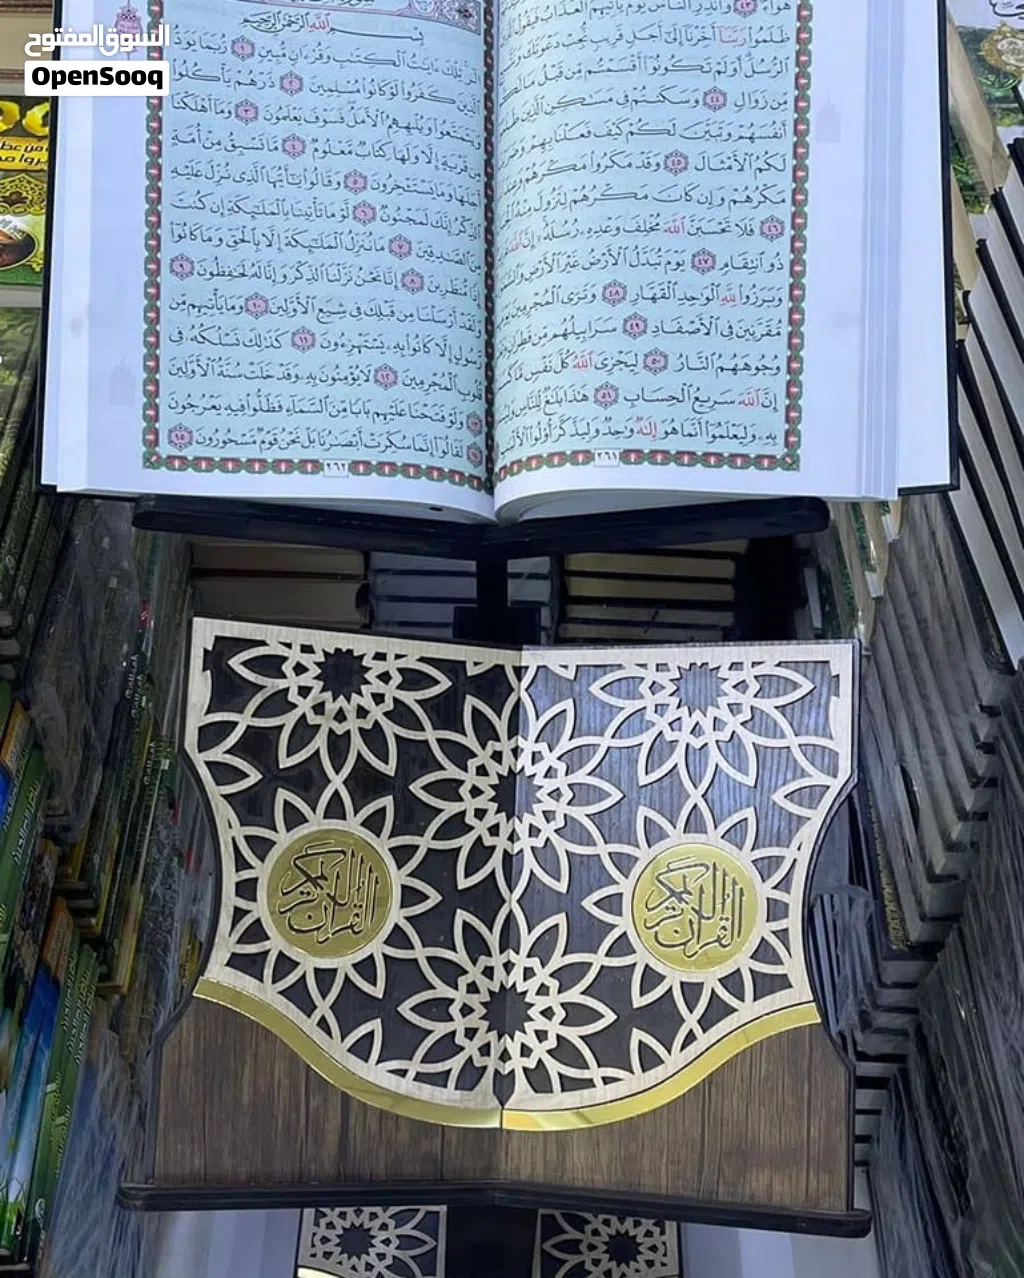 السوق المفتوح
OpenSooq
هواء ٤٣ وأنذر الناس يوم يأتيهم العذاب فيقول
ظلموا ربنا أخرنا إلى أجل قريب نجب دعوتك
الرسل أولم تكونوا أقسمتم من قبل ما
من زوال ٤٤ وسكنتم في مساكن الذين
أنفسهم وتبين لكم كيف فعلنا بهم
لكم الأمثال ٤٥ وقد مكروا مكرهم
مكرهم وإن كان مكرهم لتزول منه
٤٦ فلا تحسبن الله مخلف وعده رسله إن الله
ذو انتقام ٤٧ يوم تبدل الأرض غير الأرض
وبرزوا لله الواحد القهار ٤٨ وترى المجرمين
مقرنين في الأصفاد ٤٩ سرابيلهم من قطران
وجوههم النار ٥٠ ليجزي الله كل نفس ما
إن الله سريع الحساب ٥١ هذا بلاغ للناس
به وليعلموا أنما هو إله واحد وليذكر أولوا
٢٦١
بسم الله الرحمن الرحيم
الر تلك ءايات الكتاب وقرءان مبين ١ ربما يود
الذين كفروا لو كانوا مسلمين ٢ ذرهم يأكلوا
ويتمتعوا ويلههم الأمل فسوف يعلمون ٣ وما أهلكنا
من قرية إلا ولها كتاب معلوم ٤ ما تسبق من أمة
أجلها وما يستأخرون ٥ وقالوا يأيها الذي نزل عليه
الذكر إنك لمجنون ٦ لو ما تأتينا بالملائكة إن كنت
من الصادقين ٧ ما ننزل الملائكة إلا بالحق وما كانوا
إذا منظرين ٨ إنا نحن نزلنا الذكر وإنا له لحافظون ٩
ولقد أرسلنا من قبلك في شيع الأولين ١٠ وما يأتيهم من
رسول إلا كانوا به يستهزءون ١١ كذلك نسلكه في
قلوب المجرمين ١٢ لا يؤمنون به وقد خلت سنة الأولين
١٣ ولو فتحنا عليهم بابا من السماء فظلوا فيه يعرجون
١٤ لقالوا إنما سكرت أبصارنا بل نحن قوم مسحورون ١٥
٢٦٢
القرآن الكريم
القرآن الكريم